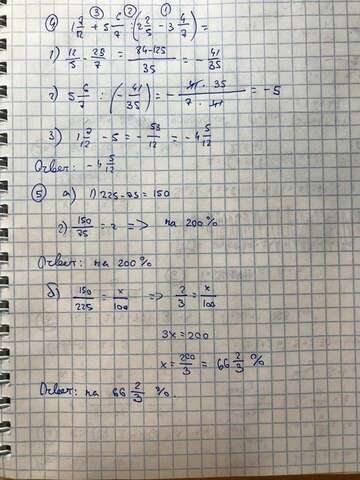 ③ ② ①
④ 1 7/12 + 5 6/7 : (2 2/5 - 3 4/7) =
1) 12/5 - 25/7 = 84-125/35 = - 41/35
2) 5 6/7 : (- 41/35) = - 41 · 35/7 · 41 = -5
3) 1 7/12 - 5 = - 53/12 = -4 5/12
Ответ: -4 5/12
⑤ а) 1) 225 - 75 = 150
2) 150/75 = 2 => на 200%
Ответ: на 200%
б) 150/225 = x/100 => 2/3 = x/100
3x = 200
x = 200/3 = 66 2/3 %
Ответ: на 66 2/3 %.